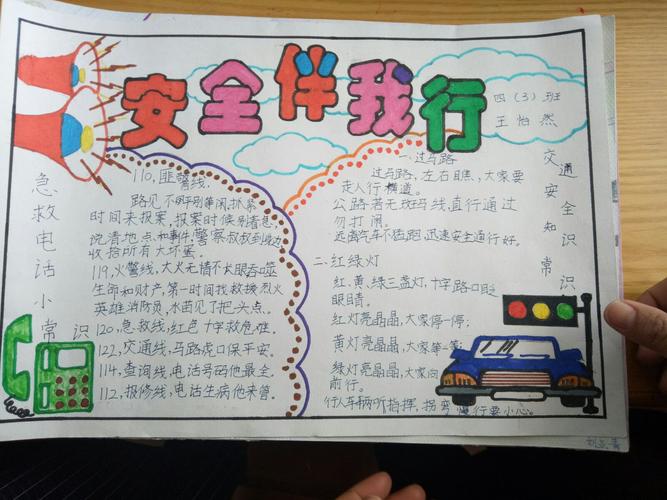 安全伴我行
四(3)班
王怡然
急救电话小常识
110,匪警线.
路见不平别等闲,抓紧
时间来报案,报案时候别着急,
说清地点和事件,警察叔叔到身边
收拾所有大坏蛋。
119,火警线,大火无情不长眼吞噬
生命和财产,第一时间找救援烈火
英雄消防员,水苗见了把头点。
120,急救线,红色十字救危难。
122,交通线,马路虎口保平安。
114,查询线,电话号码他最全.
112,报修线,电话生病他来管。
交通安全知识常识
一.过马路
过马路,左右瞧,大家要
走人行横道。
公路若无斑马线,直行通过
勿打闹。
远离汽车不猛跑,迅速安全通行好。
二.红绿灯
红、黄、绿三盏灯,十字路口眨
眼睛。
红灯亮晶晶,大家停一停;
黄灯亮晶晶,大家等一等;
绿灯亮晶晶,大家向
前行。
行人车辆听指挥,拐弯慢行要小心。